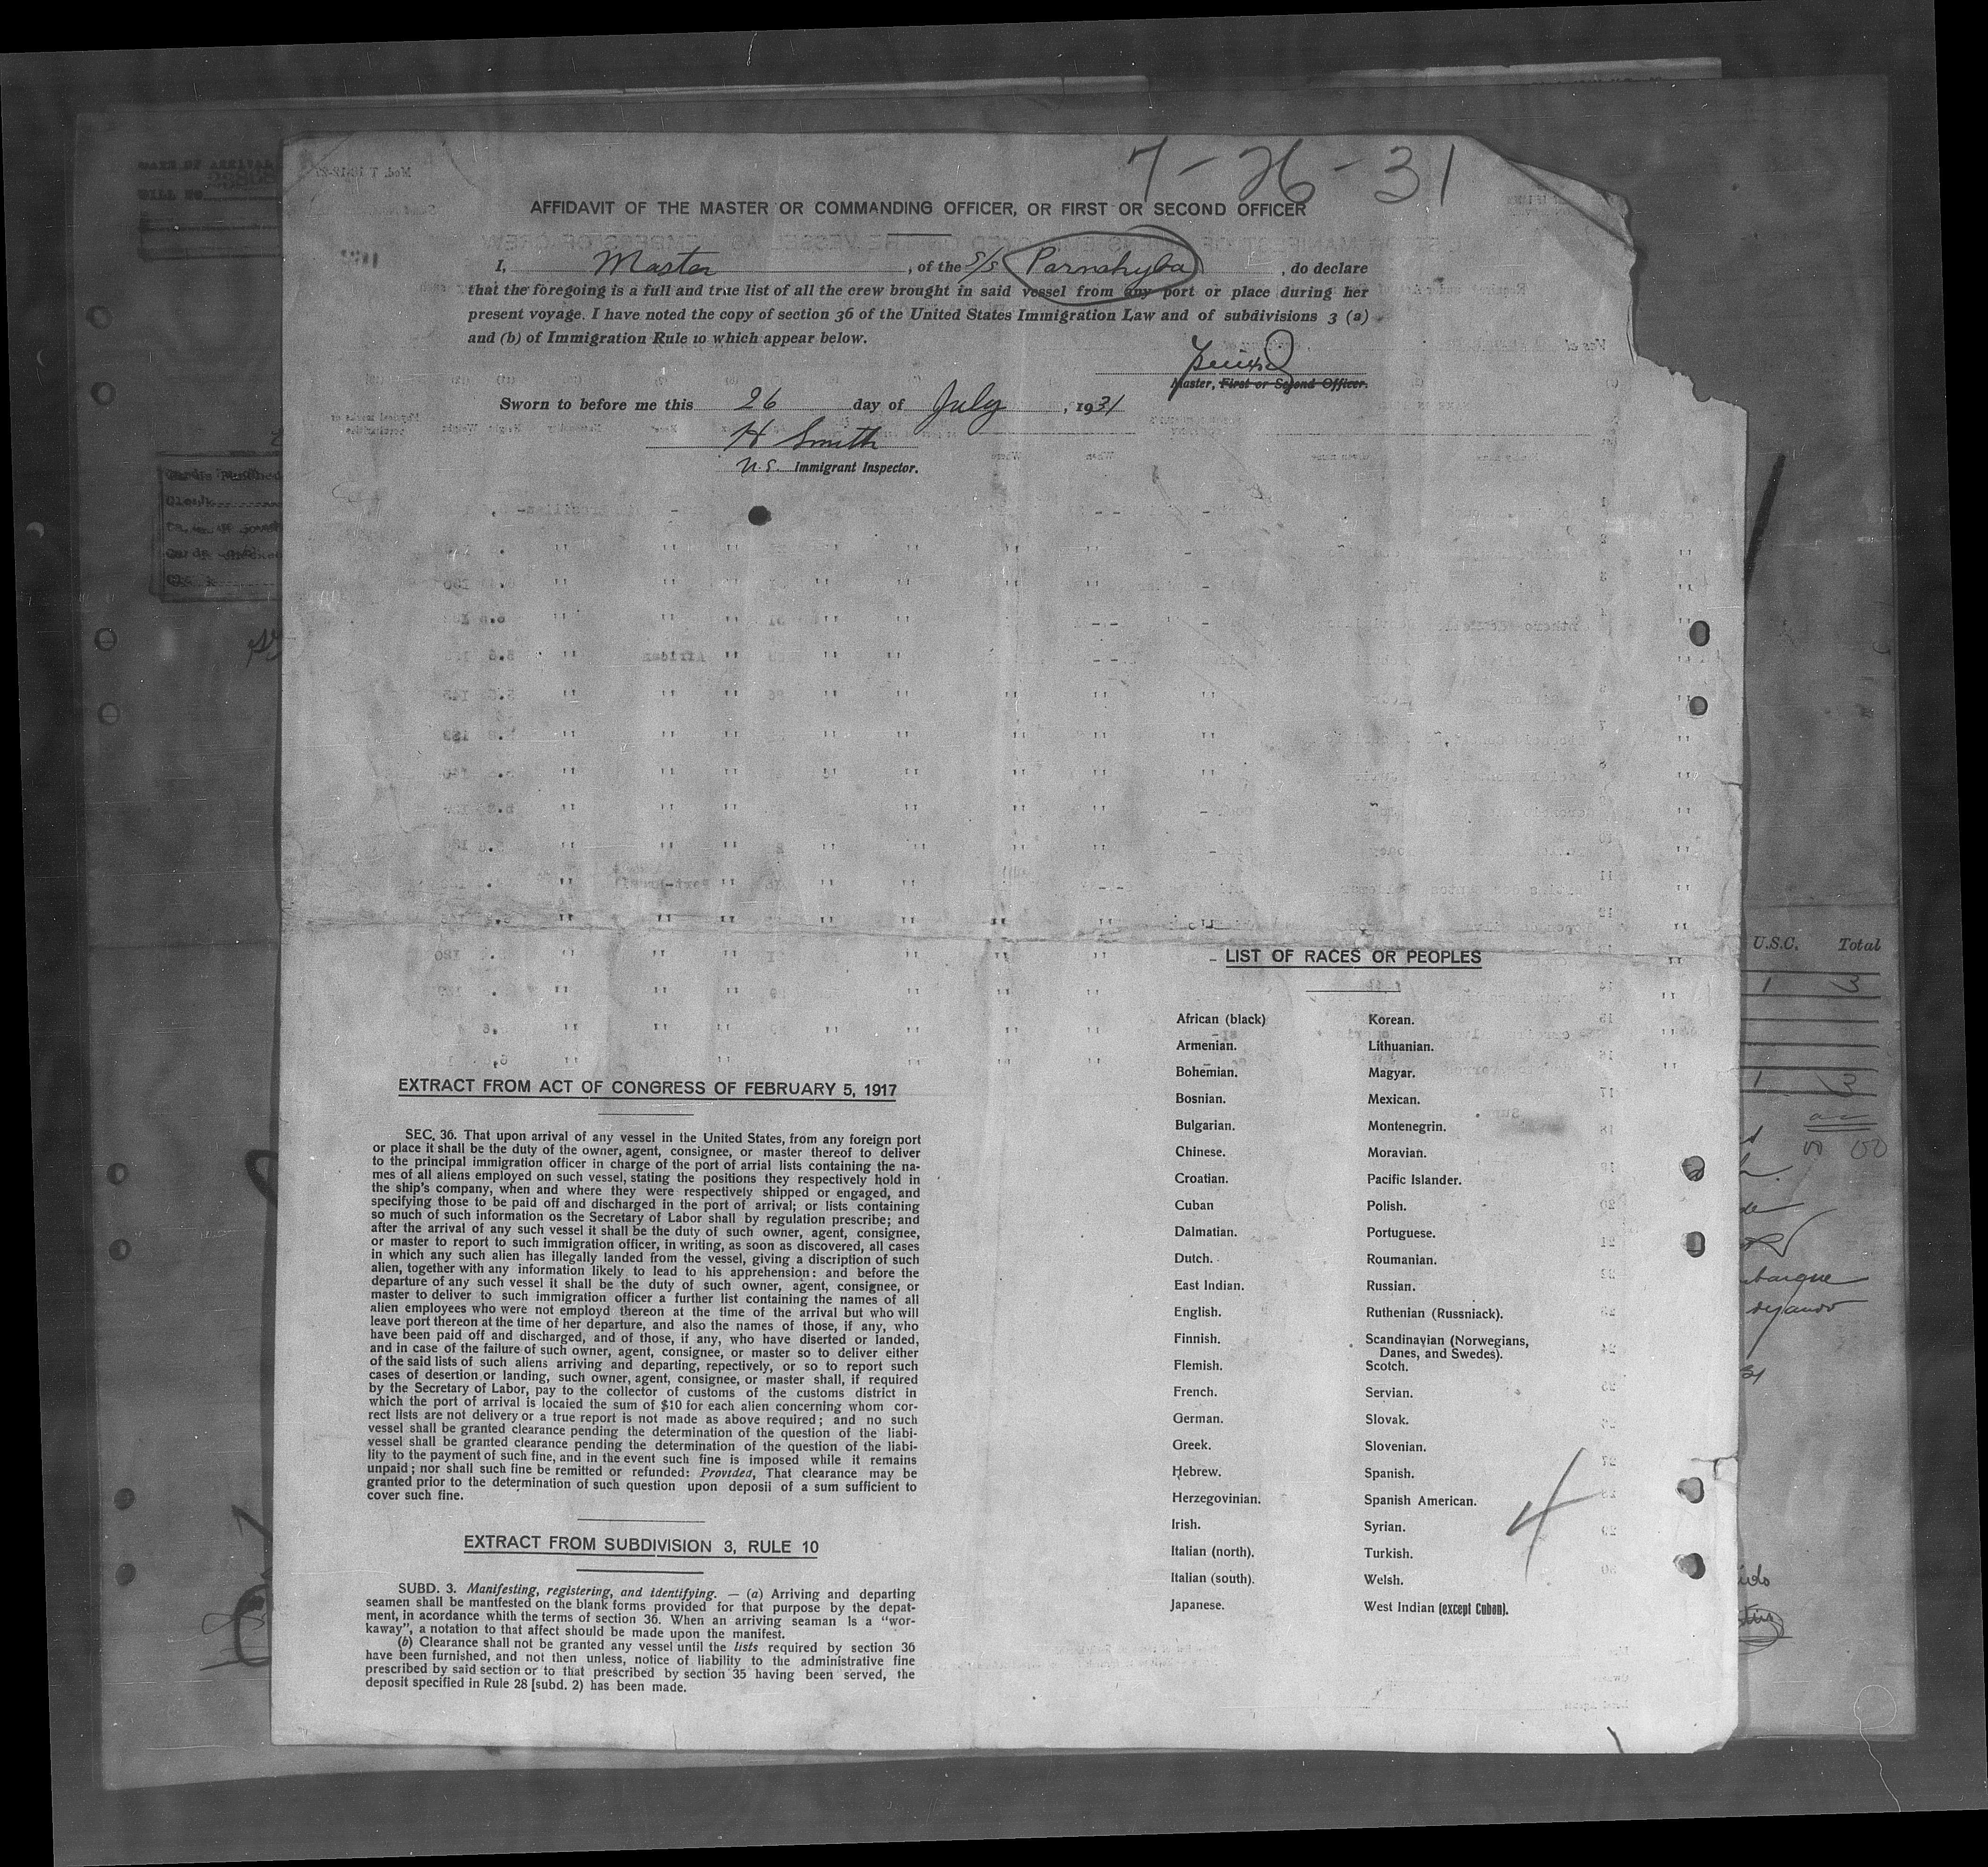 7-26-31
AFFIDAVIT OF THE MASTER OR COMMANDING OFFICER, OR FIRST OR SECOND OFFICER
I, Master, of the S/S Parnahyba, do declare
that the foregoing is a full and true list of all the crew brought in said vessel from any port or place during her
present voyage. I have noted the copy of section 36 of the United States Immigration Law and of subdivisions 3 (a)
and (b) of Immigration Rule 10 which appear below.
Master, First or Second Officer.
Sworn to before me this 26 day of July, 1931
H Smith
U.S. Immigrant Inspector.
EXTRACT FROM ACT OF CONGRESS OF FEBRUARY 5, 1917
SEC. 36. That upon arrival of any vessel in the United States, from any foreign port
or place it shall be the duty of the owner, agent, consignee, or master thereof to deliver
to the principal immigration officer in charge of the port of arrial lists containing the na-
mes of all aliens employed on such vessel, stating the positions they respectively hold in
the ship's company, when and where they were respectively shipped or engaged, and
specifying those to be paid off and discharged in the port of arrival; or lists containing
so much of such information os the Secretary of Labor shall by regulation prescribe; and
after the arrival of any such vessel it shall be the duty of such owner, agent, consignee,
or master to report to such immigration officer, in writing, as soon as discovered, all cases
in which any such alien has illegally landed from the vessel, giving a discription of such
alien, together with any information likely to lead to his apprehension: and before the
departure of any such vessel it shall be the duty of such owner, agent, consignee, or
master to deliver to such immigration officer a further list containing the names of all
alien employees who were not employd thereon at the time of the arrival but who will
leave port thereon at the time of her departure, and also the names of those, if any, who
have been paid off and discharged, and of those, if any, who have diserted or landed,
and in case of the failure of such owner, agent, consignee, or master so to deliver either
of the said lists of such aliens arriving and departing, repectively, or so to report such
cases of desertion or landing, such owner, agent, consignee, or master shall, if required
by the Secretary of Labor, pay to the collector of customs of the customs district in
which the port of arrival is locaied the sum of $10 for each alien concerning whom cor-
rect lists are not delivery or a true report is not made as above required; and no such
vessel shall be granted clearance pending the determination of the question of the liabi-
vessel shall be granted clearance pending the determination of the question of the liabi-
lity to the payment of such fine, and in the event such fine is imposed while it remains
unpaid; nor shall such fine be remitted or refunded: Provided, That clearance may be
granted prior to the determination of such question upon deposii of a sum sufficient to
cover such fine.
EXTRACT FROM SUBDIVISION 3, RULE 10
SUBD. 3. Manifesting, registering, and identifying. — (a) Arriving and departing
seamen shall be mantfested on the blank forms provided for that purpose by the depat-
ment, in acordance whith the terms of section 36. When an arriving seaman is a "wor-
kaway", a notation to that affect should be made upon the manifest.
(b) Clearance shall not be granted any vessel until the lists required by section 36
have been furnished, and not then unless, notice of liability to the administrative fine
prescribed by said section or to that prescribed by section 35 having been served, the
deposit specified in Rule 28 [subd. 2) has been made.
LIST OF RACES OR PEOPLES
African (black) Korean.
Armenian. Lithuanian.
Bohemian. Magyar.
Bosnian. Mexican.
Bulgarian. Montenegrin.
Chinese. Moravian.
Croatian. Pacific Islander.
Cuban Polish.
Dalmatian. Portuguese.
Dutch. Roumanian.
East Indian. Russian.
English. Ruthenian (Russniack).
Finnish. Scandinavian (Norwegians,
Danes, and Swedes).
Flemish. Scotch.
French. Servian.
German. Slovak.
Greek. Slovenian.
Hebrew. Spanish.
Herzegovinian. Spanish American.
Irish. Syrian.
Italian (north). Turkish.
Italian (south). Welsh.
Japanese. West Indian (except Cuban).
4
U.S.C. Total
1 3
1 3